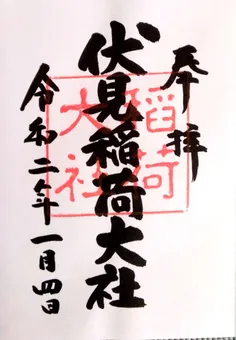 奉拝
伏見稲荷大社
稲荷
大社
令和二年一月四日